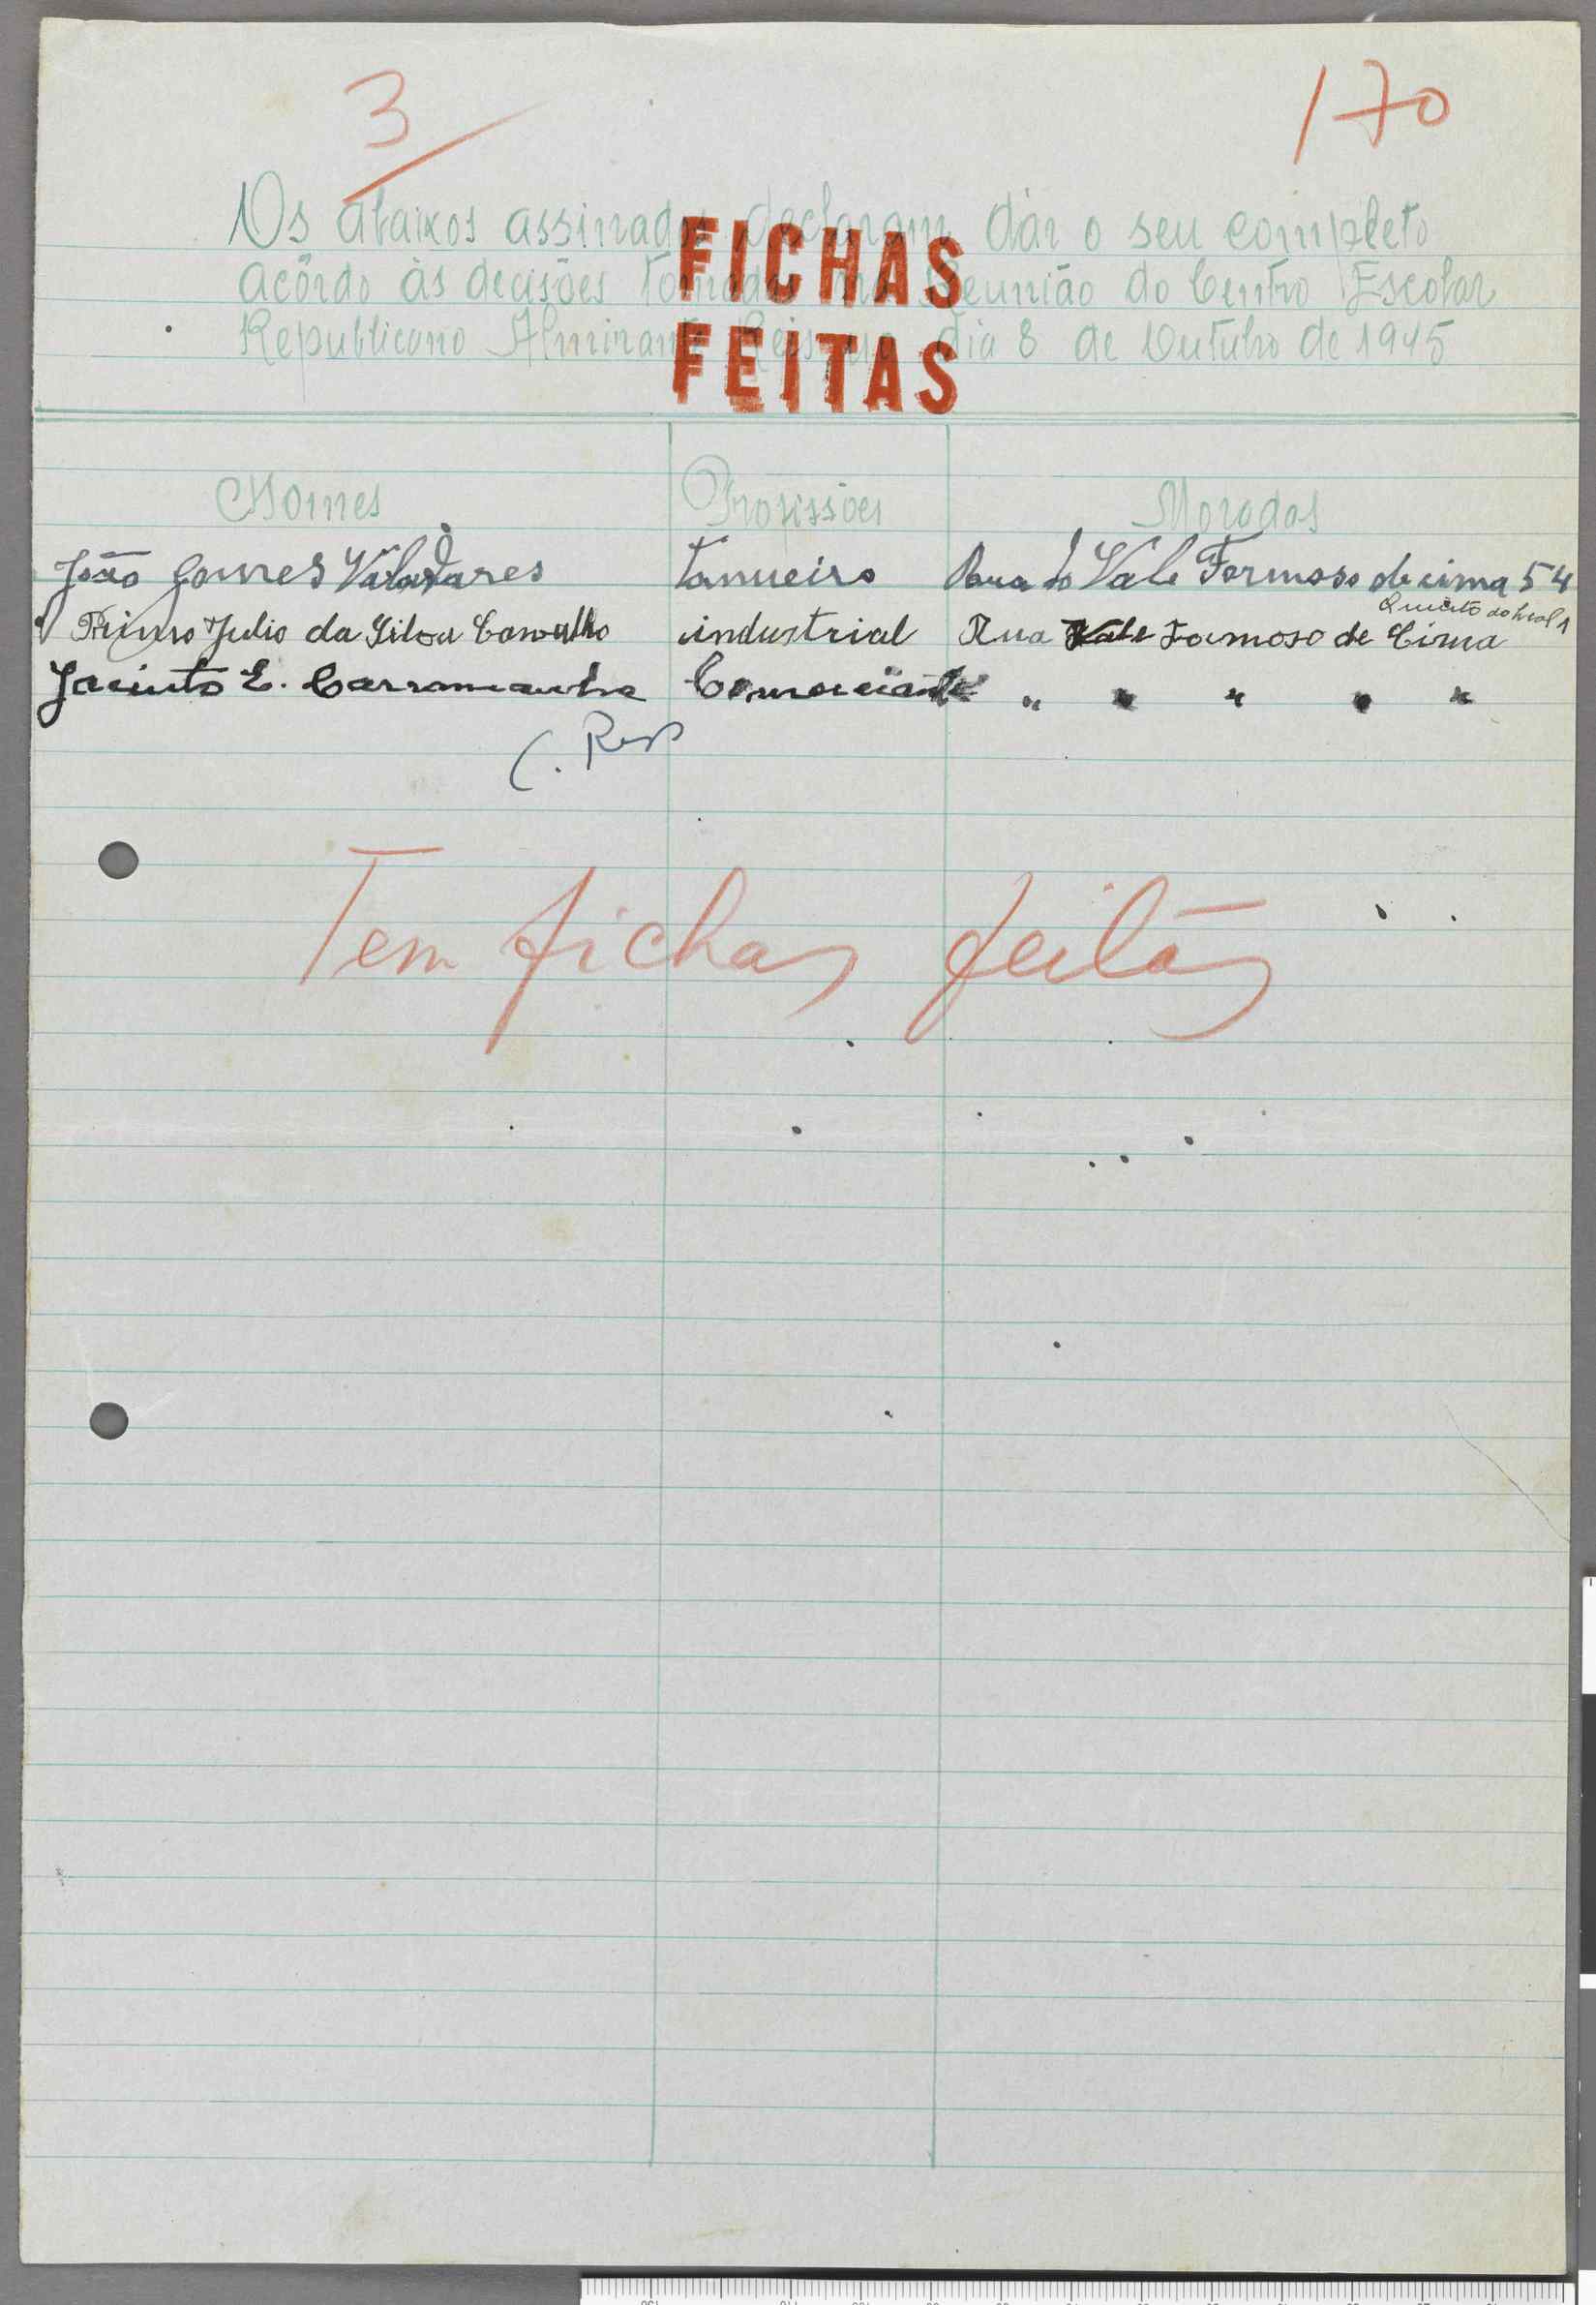 3
170
Os abaixos assinados declaram dar o seu completo
acôrdo às decisões tomadas na Reunião do Centro Escolar
Republicano Almirante Reis no dia 8 de Outubro de 1945
FICHAS
FEITAS
Nomes Profissões Moradas
João Gomes Valadares Tanueiro Rua do Vale Formoso de cima 54
Quinta do
Primo Julio da Silva Carvalho industrial Rua Vale Formoso de Cima
Jacinto E. Carramanha Comerciante " " " " "
Tem fichas feitas